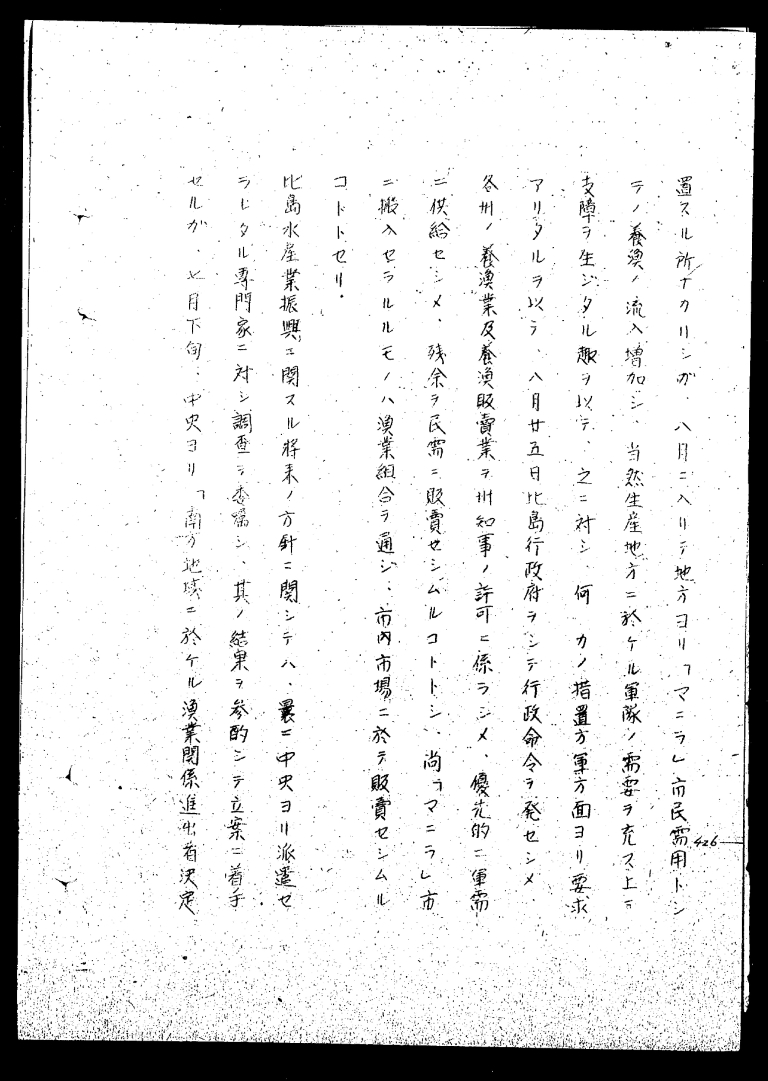 置スル所ナカリシガ、八月ニ入リテ地方ヨリ「マニラ」市民需用トシ
テノ養漁ノ流入増加シ、当然生産地方ニ於ケル軍隊ノ需要ヲ充ス上ニ
支障ヲ生ジタル趣ヲ以テ、之ニ対シ、何カノ措置方軍方面ヨリ要求
アリタルヲ以テ、八月廿五日比島行政府ヲシテ行政命令ヲ発セシメ
各州ノ養漁業及養漁販賣業ヲ州知事ノ許可ニ係ラシメ、優先的ニ軍需
ニ供給セシメ、残余ヲ民需ニ販賣セシムルコトトシ、尚「マニラ」市
ニ搬入セラルルモノハ漁業組合ヲ通ジ、市内市場ニ於テ販賣セシムル
コトトセリ.
比島水産業振興ニ関スル将来ノ方針ニ関シテハ、曩ニ中央ヨリ派遣セ
ラレタル専門家ニ対シ調査ヲ委嘱シ、其ノ結果ヲ参酌シテ立案ニ着手
セルガ、七月下旬、中央ヨリ「南方地域ニ於ケル漁業関係進出者決定
426